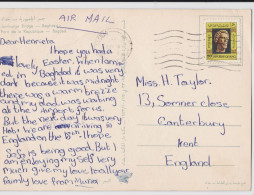 AIR MAIL
Dear Henrieta
I hope you had a
lovely Easter. When I arrived
in Baghdad it was very
dark because it was midnight
there was a warm breeze
and my dad was waiting
at the airport for us.
But the next day it was very
Hot. We are arriving in
England on the 16th. I hope
JoJo is being good. But I
am enjoying my self very
much give my love to all your
family love from Muna
Miss. H. Taylor.
13, Somner close
Canterbury
Kent
England